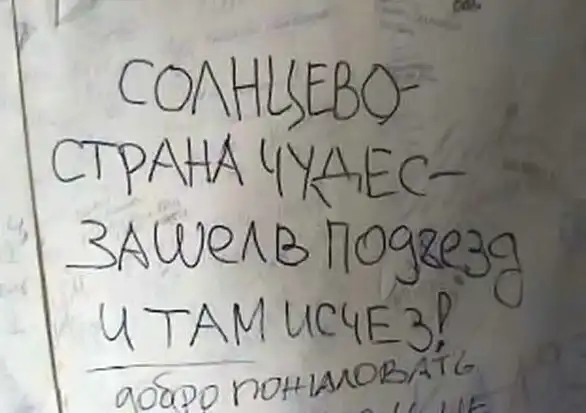 СОЛНЦЕВО-
СТРАНА ЧУДЕС-
ЗАШЕЛ В ПОДЪЕЗД
И ТАМ ИСЧЕЗ!
ДОБРО ПОЖАЛОВАТЬ